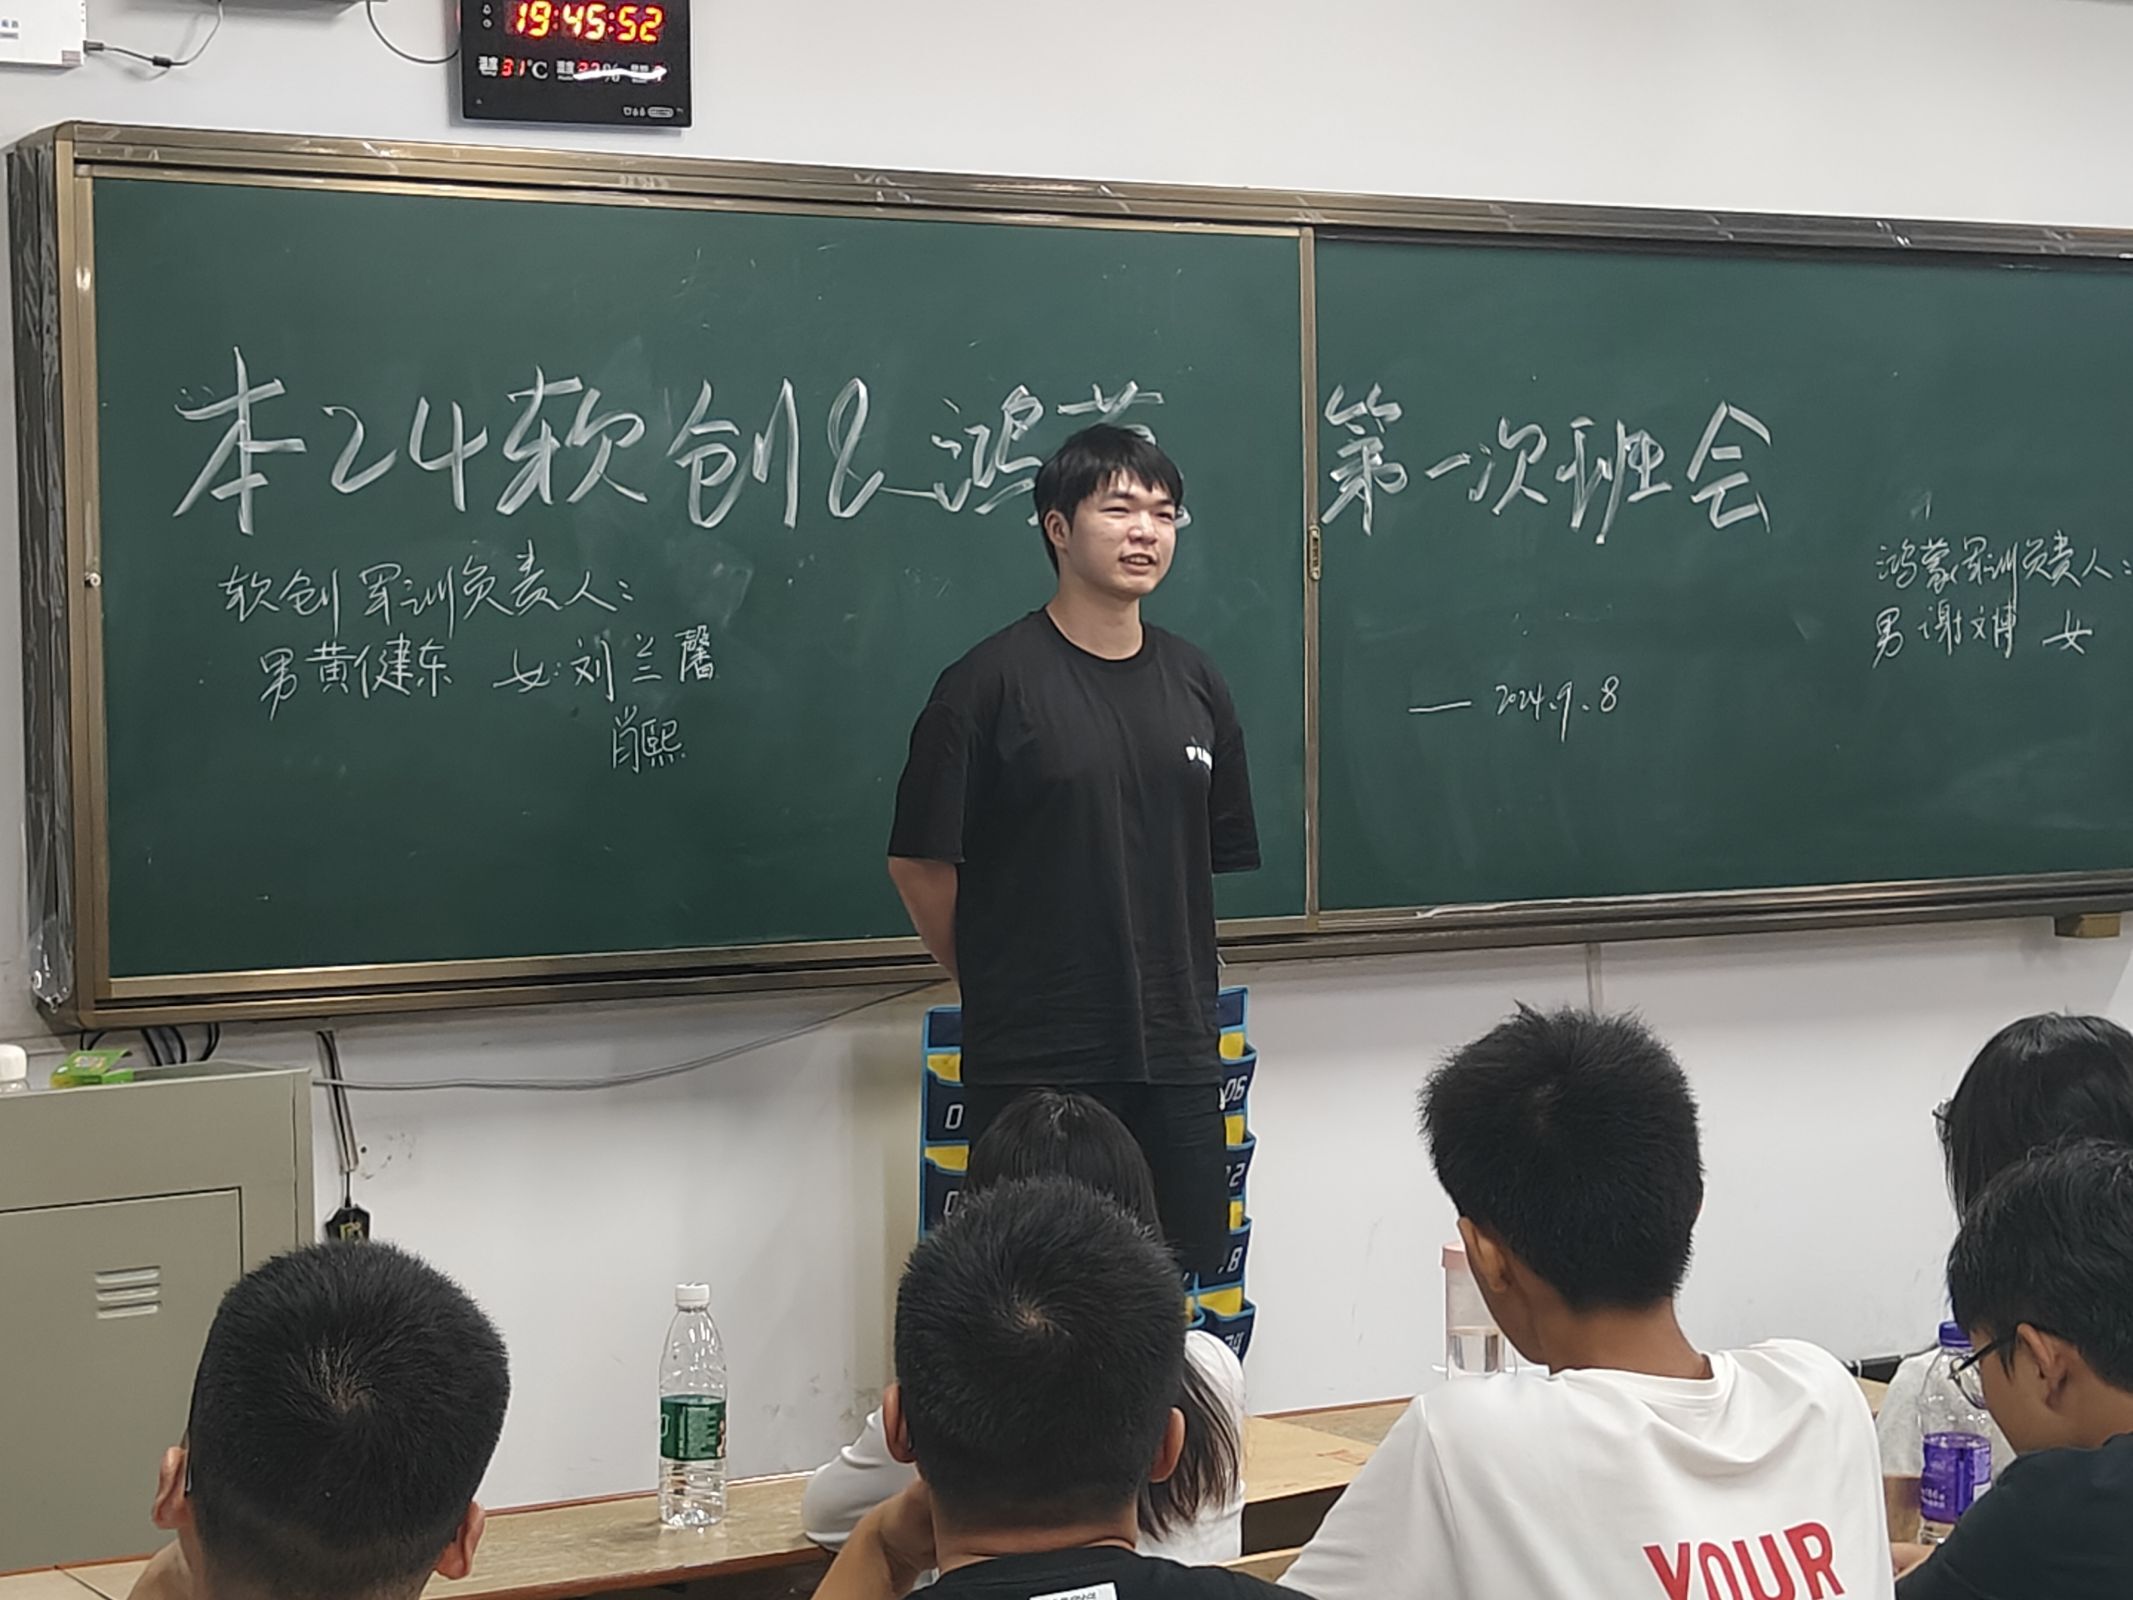 19:45:52
31°C
本24软创&鸿蒙 第一次班会
软创军训负责人:
男黄健东 女:刘兰馨
肖熙
— 2024.9.8
鸿蒙军训负责人:
男谢文博 女
06
YOUR